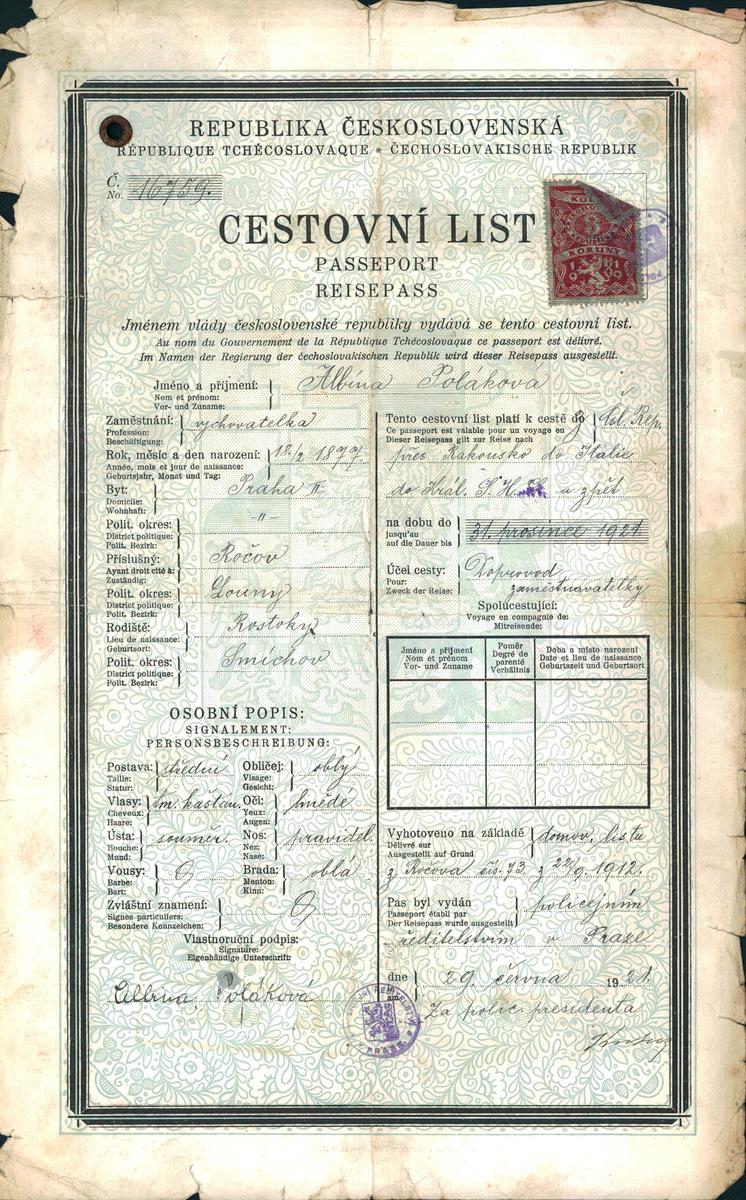 REPUBLIKA ČESKOSLOVENSKÁ
RÉPUBLIQUE TCHÉCOSLOVAQUE * ČECHOSLOVAKISCHE REPUBLIK
Č.
No. 16759.
CESTOVNÍ LIST
PASSEPORT
REISEPASS
KORUNY
1919
Jménem vlády československé republiky vydává se tento cestovní list.
Au nom du Gouvernement de la République Tchécoslovaque ce passeport est délivré.
Im Namen der Regierung der čechoslovakischen Republik wird dieser Reisepass ausgestellt.
Jméno a příjmení: Albína Poláková
Nom et prénom:
Vor- und Zuname:
Zaměstnání: vychovatelka
Profession:
Beschäftigung:
Rok, měsíc a den narození: 18/2 1877.
Année, mois et jour de naissance:
Geburtsjahr, Monat und Tag:
Byt: Praha II
Domicile:
Wohnhaft:
Polit. okres: -"-
District politique:
Polit. Bezirk:
Příslušný: Ročov
Ayant droit cité à:
Zuständig:
Polit. okres: Louny
District politique:
Polit. Bezirk:
Rodiště: Rostoky
Lieu de naissance:
Geburtsort:
Polit. okres: Smíchov
District politique:
Polit. Bezirk:
OSOBNÍ POPIS:
SIGNALEMENT:
PERSONSBESCHREIBUNG:
Postava: střední Obličej: oblý
Taille: Visage:
Statur: Gesicht:
Vlasy: tm. kaštan. Oči: hnědé
Cheveux: Yeux:
Haare: Augen:
Ústa: souměr. Nos: pravidel.
Bouche: Nez:
Mund: Nase:
Vousy: Brada: oblá
Barbe: Menton:
Bart: Kinn:
Zvláštní znamení:
Signes particuliers:
Besondere Kennzeichen:
Vlastnoruční podpis:
Signature:
Eigenhändige Unterschrift:
Albina Poláková
Tento cestovní list platí k cestě do Čsl. Rep.
Ce passeport est valable pour un voyage en
Dieser Reisepass gilt zur Reise nach
přes Rakousko do Italie
do Král. S. H. S. a zpět
na dobu do 31. prosince 1921
jusqu'au
auf die Dauer bis
Účel cesty: Doprovod
Pour: zaměstnavatelky
Zweck der Reise:
Spolucestující:
Voyage en compagnie de:
Mitreisende:
Jméno a příjmení Poměr Doba a místo narození
Nom et prénom Degré de Date et lieu de naissance
Vor- und Zuname parenté Geburtszeit und Geburtsort
Verhältnis
Vyhotoveno na základě domov. listu
Délivré sur
Ausgestellt auf Grund
z Ročova čís. 73 z 22/9. 1912.
Pas byl vydán policejním
Passeport établi par
Der Reisepass wurde ausgestellt
ředitelstvím v Praze
dne 29 června 1921.
le
am
Za polic. presidenta